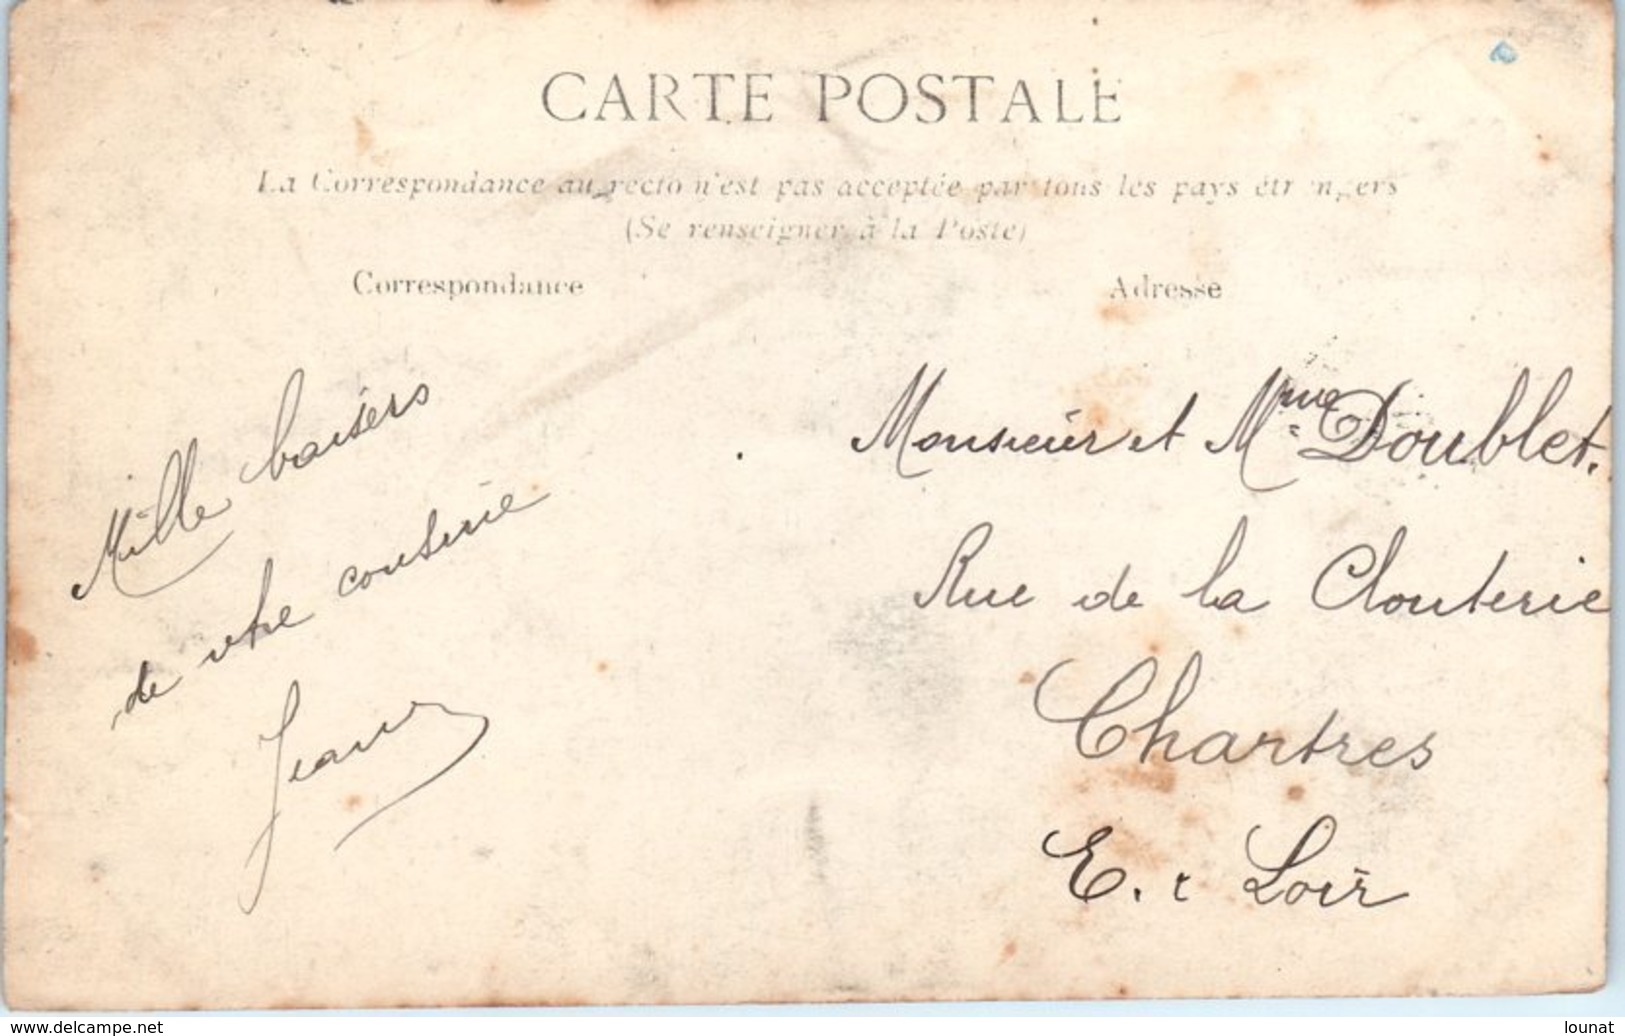 CARTE POSTALE
La Correspondance au recto n'est pas acceptée par tous les pays étrangers
(Se renseigner à la Poste)
Correspondance
Mille baisers
de votre cousine
Jeanne
Adresse
Monsieur et Mme Doublet.
Rue de la Clouterie
Chartres
E. et Loir
www.delcampe.net
lounat